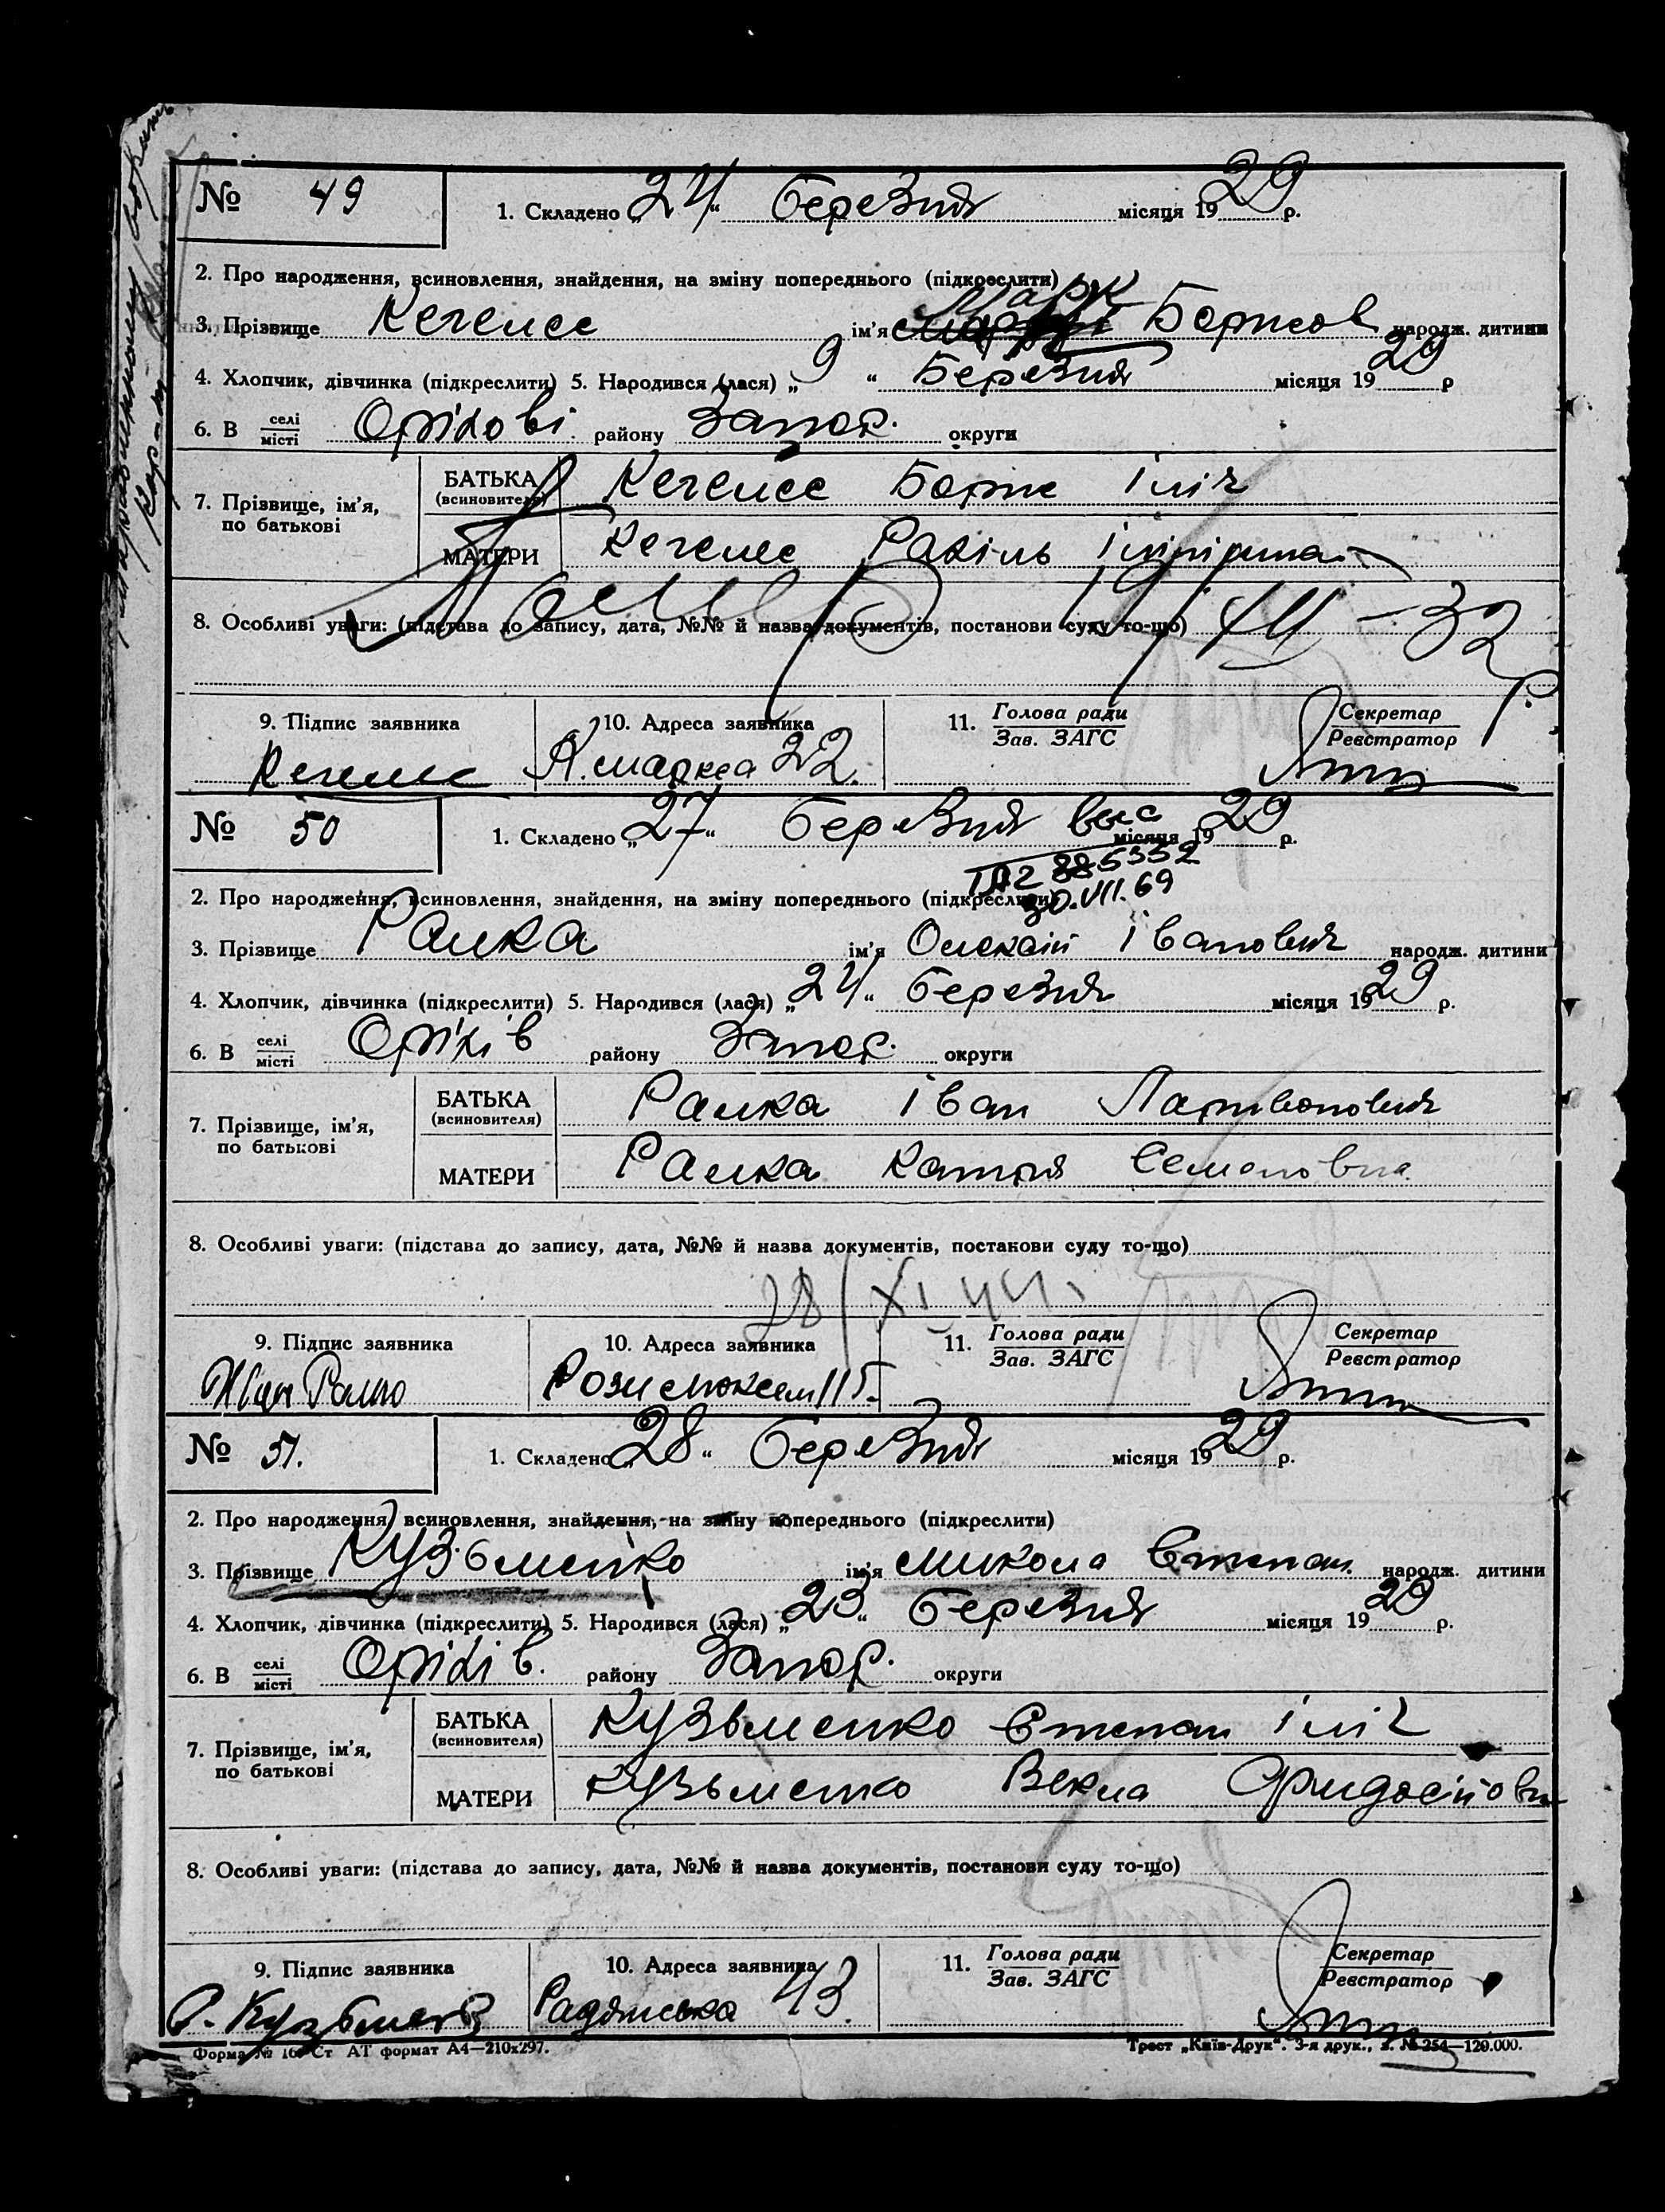 № 49 1. Складено „24“ березня місяця 1929 р.
2. Про народження, всиновлення, знайдення, на зміну попереднього (підкреслити)
Марк
3. Прізвище Кегелес ім'я Борисов народж. дитини
4. Хлопчик, дівчинка (підкреслити) 5. Народився (лася) „9“ Березня місяця 1929 р
6. В селі/місті Оріхові району Запор. округи
7. Прізвище, ім'я, по батькові БАТЬКА (всиновителя) Кегелес Борис Ілліч
МАТЕРИ Кегелес Рахіль
8. Особливі уваги: (підстава до запису, дата, №№ й назва документів, постанови суду то-що) 32 р.
9. Підпис заявника 10. Адреса заявника 11. Голова ради / Зав. ЗАГС Секретар / Реєстратор
Кегелес К. Маркса 22.
№ 50 1. Складено „27“ березня місяця 1929 р.
885352
2. Про народження, всиновлення, знайдення, на зміну попереднього (підкреслити) 30.VII.69
3. Прізвище Ралка ім'я Олексій Іванович народж. дитини
4. Хлопчик, дівчинка (підкреслити) 5. Народився (лася) „24“ березня місяця 1929 р.
6. В селі/місті Оріхів району Запор. округи
7. Прізвище, ім'я, по батькові БАТЬКА (всиновителя) Ралка Іван Ларивонович
МАТЕРИ Ралка Катря Семеновна
8. Особливі уваги: (підстава до запису, дата, №№ й назва документів, постанови суду то-що)
28/XI 44.
9. Підпис заявника 10. Адреса заявника 11. Голова ради / Зав. ЗАГС Секретар / Реєстратор
Рози Люксем 115.
№ 51. 1. Складено „28“ березня місяця 1929 р.
2. Про народження, всиновлення, знайдення, на зміну попереднього (підкреслити)
3. Прізвище Кузьменко ім'я Микола Степан. народж. дитини
4. Хлопчик, дівчинка (підкреслити) 5. Народився (лася) „23“ березня місяця 1929 р.
6. В селі/місті Оріхів. району Запор. округи
7. Прізвище, ім'я, по батькові БАТЬКА (всиновителя) Кузьменко Степан Ілліч
МАТЕРИ Кузьменко Векла
8. Особливі уваги: (підстава до запису, дата, №№ й назва документів, постанови суду то-що)
9. Підпис заявника 10. Адреса заявника 11. Голова ради / Зав. ЗАГС Секретар / Реєстратор
Радянська 43.
Форма № 16. Ст АТ формат А4—210x297. Трест „Київ-Друк“. 3-я друк., з. № 254—120.000.